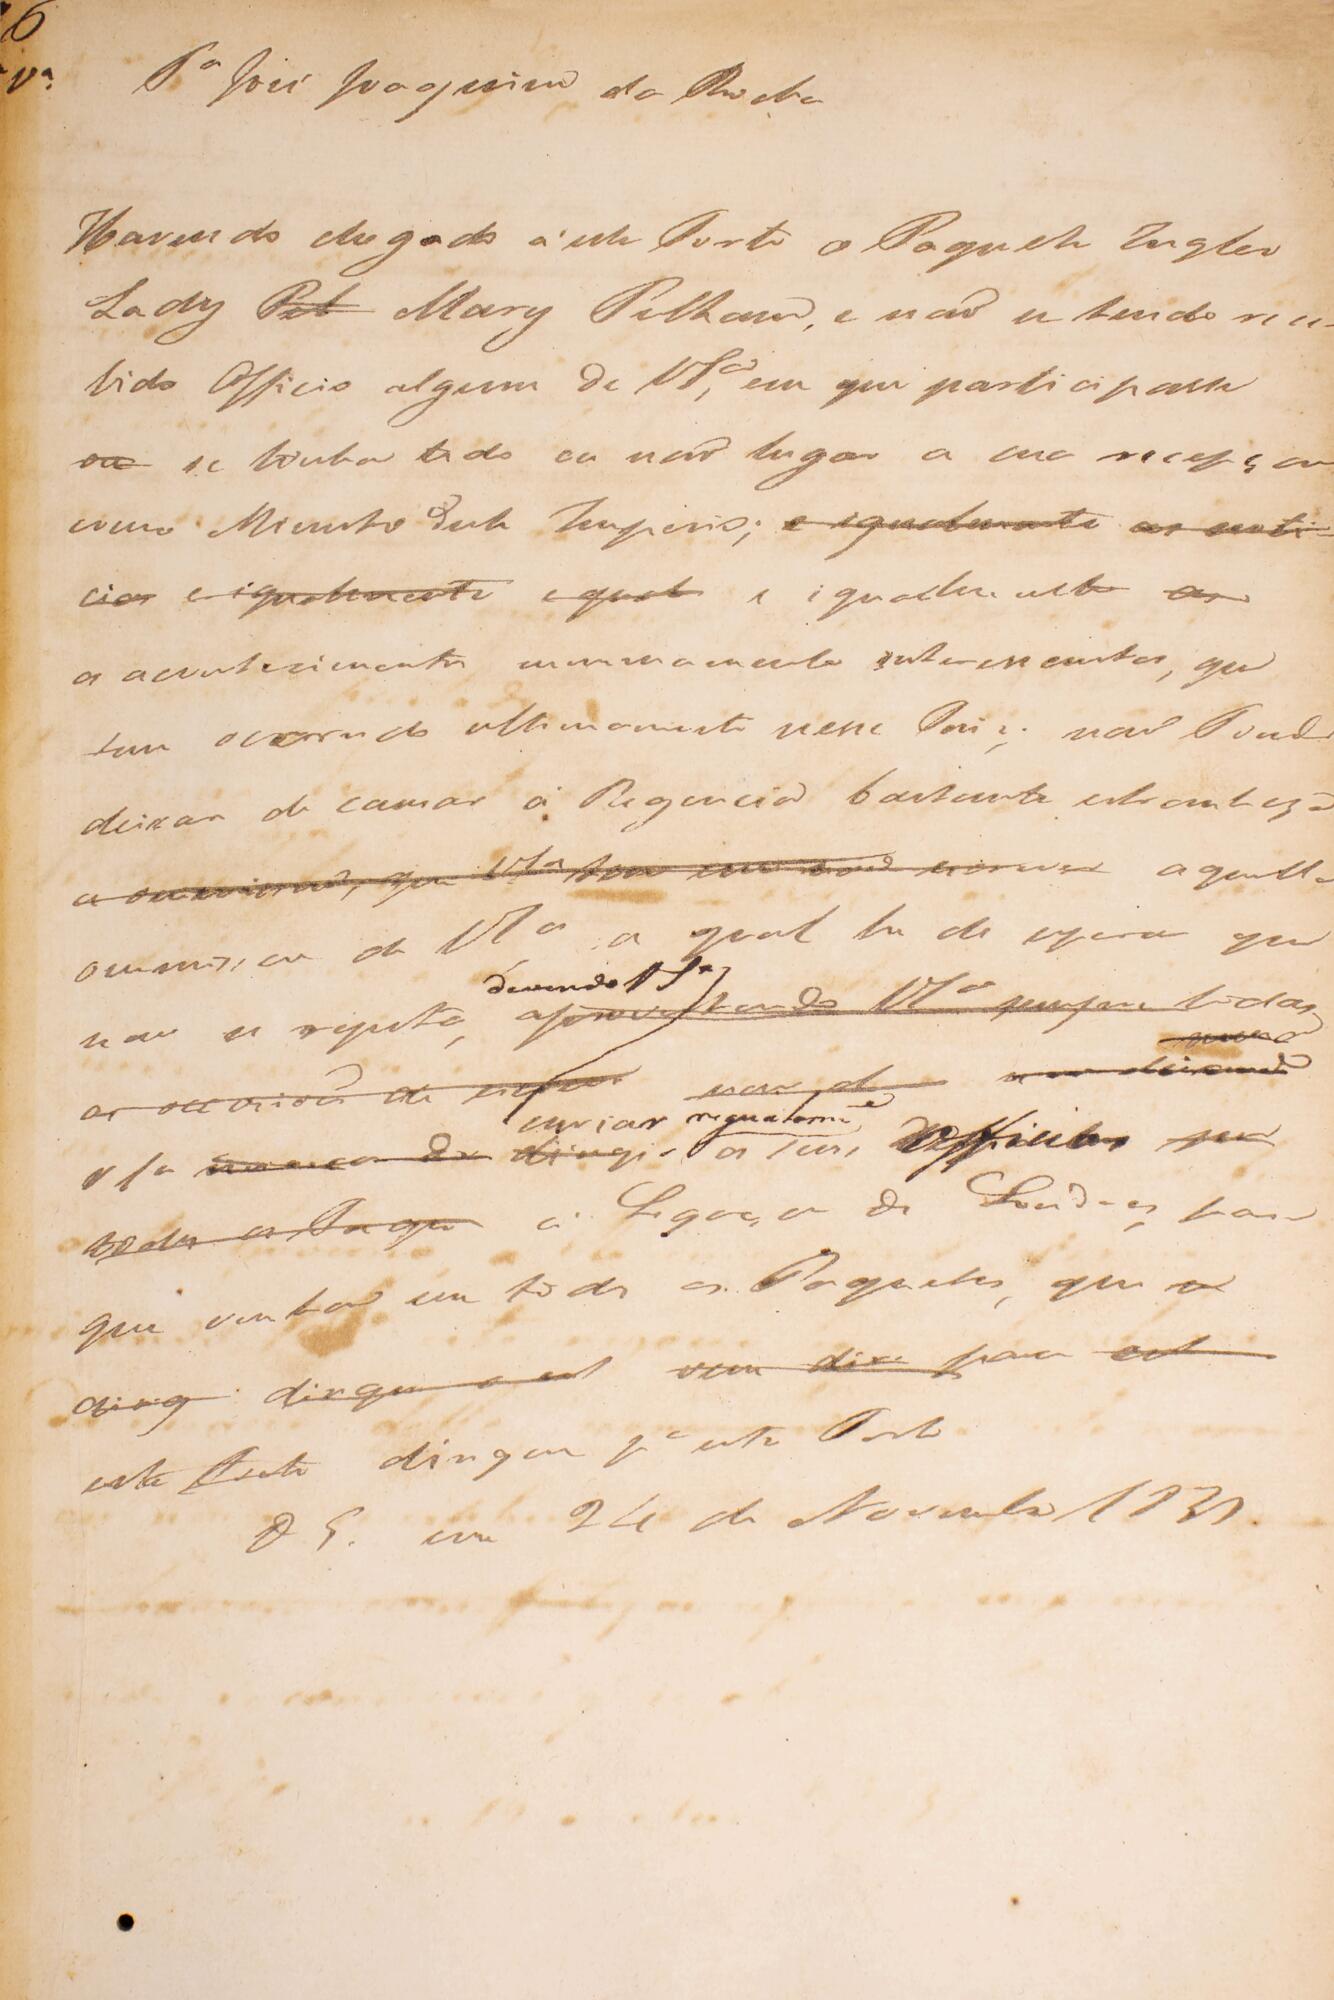 6
Vª.
Pª José Joaquim da Rocha
Havendo chegado á este Porto o Paquete Inglez
Lady Pel Mary Pelham, e naõ se tendo rece-
bido Officio algum de VSª, em que participasse
ou se tinha tido ou naõ lugar a sua recepçaõ
como Ministro deste Imperio; e igualmente as noti-
cias e igualmente egual e igualmente os
os acontecimentos summamente interessantes, que
tem occorrido ultimamente nesse Paiz; naõ Pode
deixar de causar á Regencia bastante estranheza
a ommissaõ, que VSª tem em naõ escrever aquella
ommissaõ de VSª a qual he de esperar que
naõ se repita, devendo VSª aproveitando VSª sempre todas
as occasiões de
VSª dirigir enviar regularmᵉ os seus Officios por
todos os Paque á Legaçaõ de Londres, para
que venhaõ em todos os Paquetes, que se
dirig dirigem a est vem dir para est
este Porto dirigem pª este Porto
D G. em 24 de Novembro 1831.